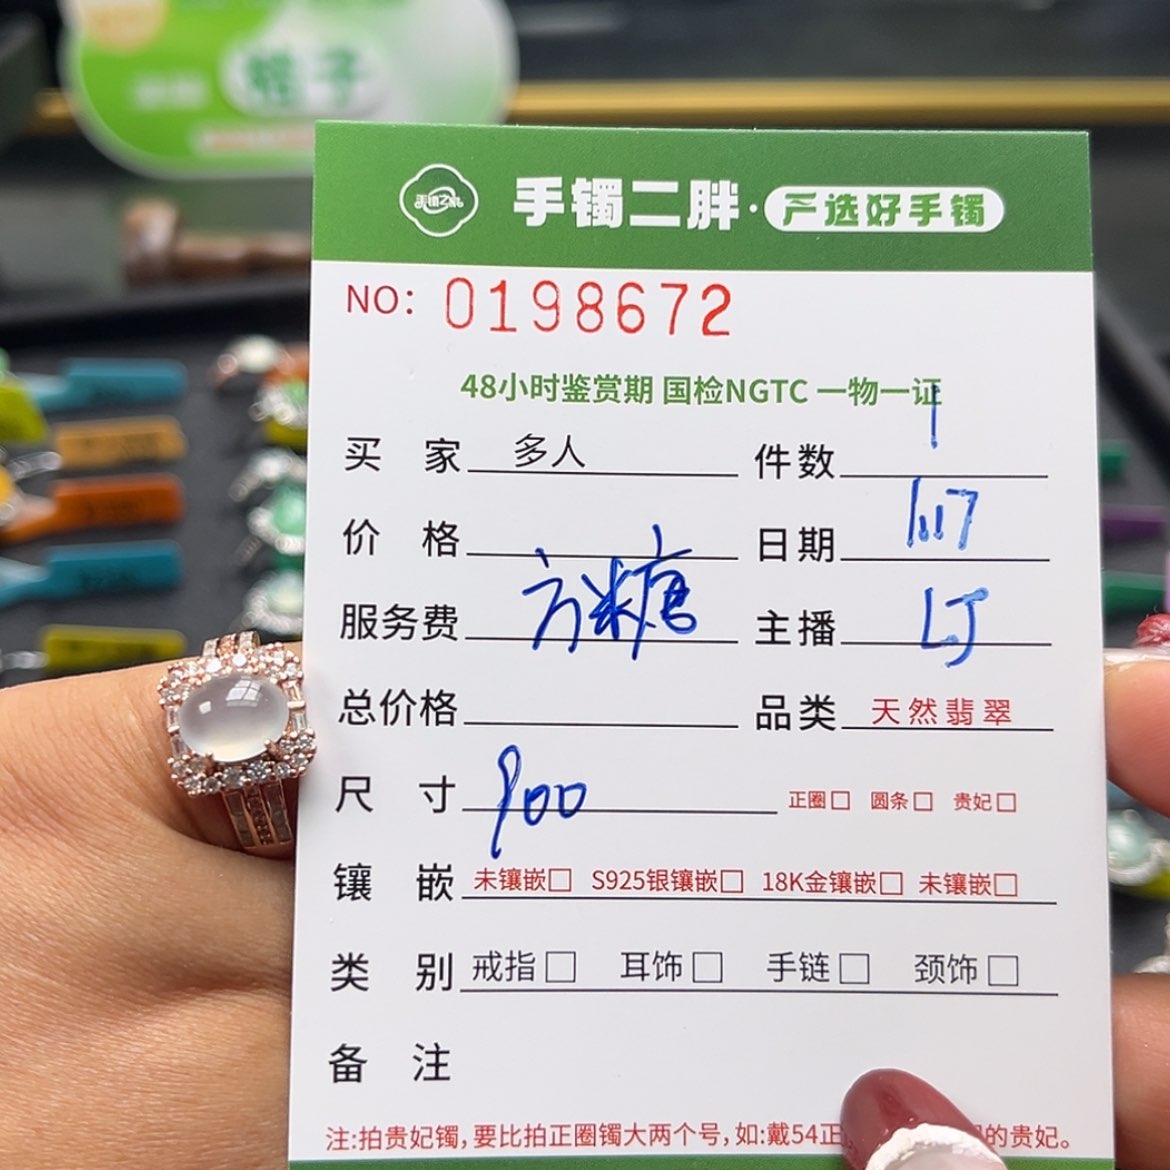 桂子
手镯二胖
手镯二胖·严选好手镯
NO: 0198672
48小时鉴赏期 国检NGTC 一物一证
买家 多人 件数 1
价格 日期 11.17
服务费 方糖 主播 LJ
总价格 品类 天然翡翠
尺寸 900 正圈□ 圆条□ 贵妃□
镶嵌 未镶嵌□ S925银镶嵌□ 18K金镶嵌□ 未镶嵌□
类别 戒指□ 耳饰□ 手链□ 颈饰□
备注
注:拍贵妃镯,要比拍正圈镯大两个号,如:戴54正 的贵妃。